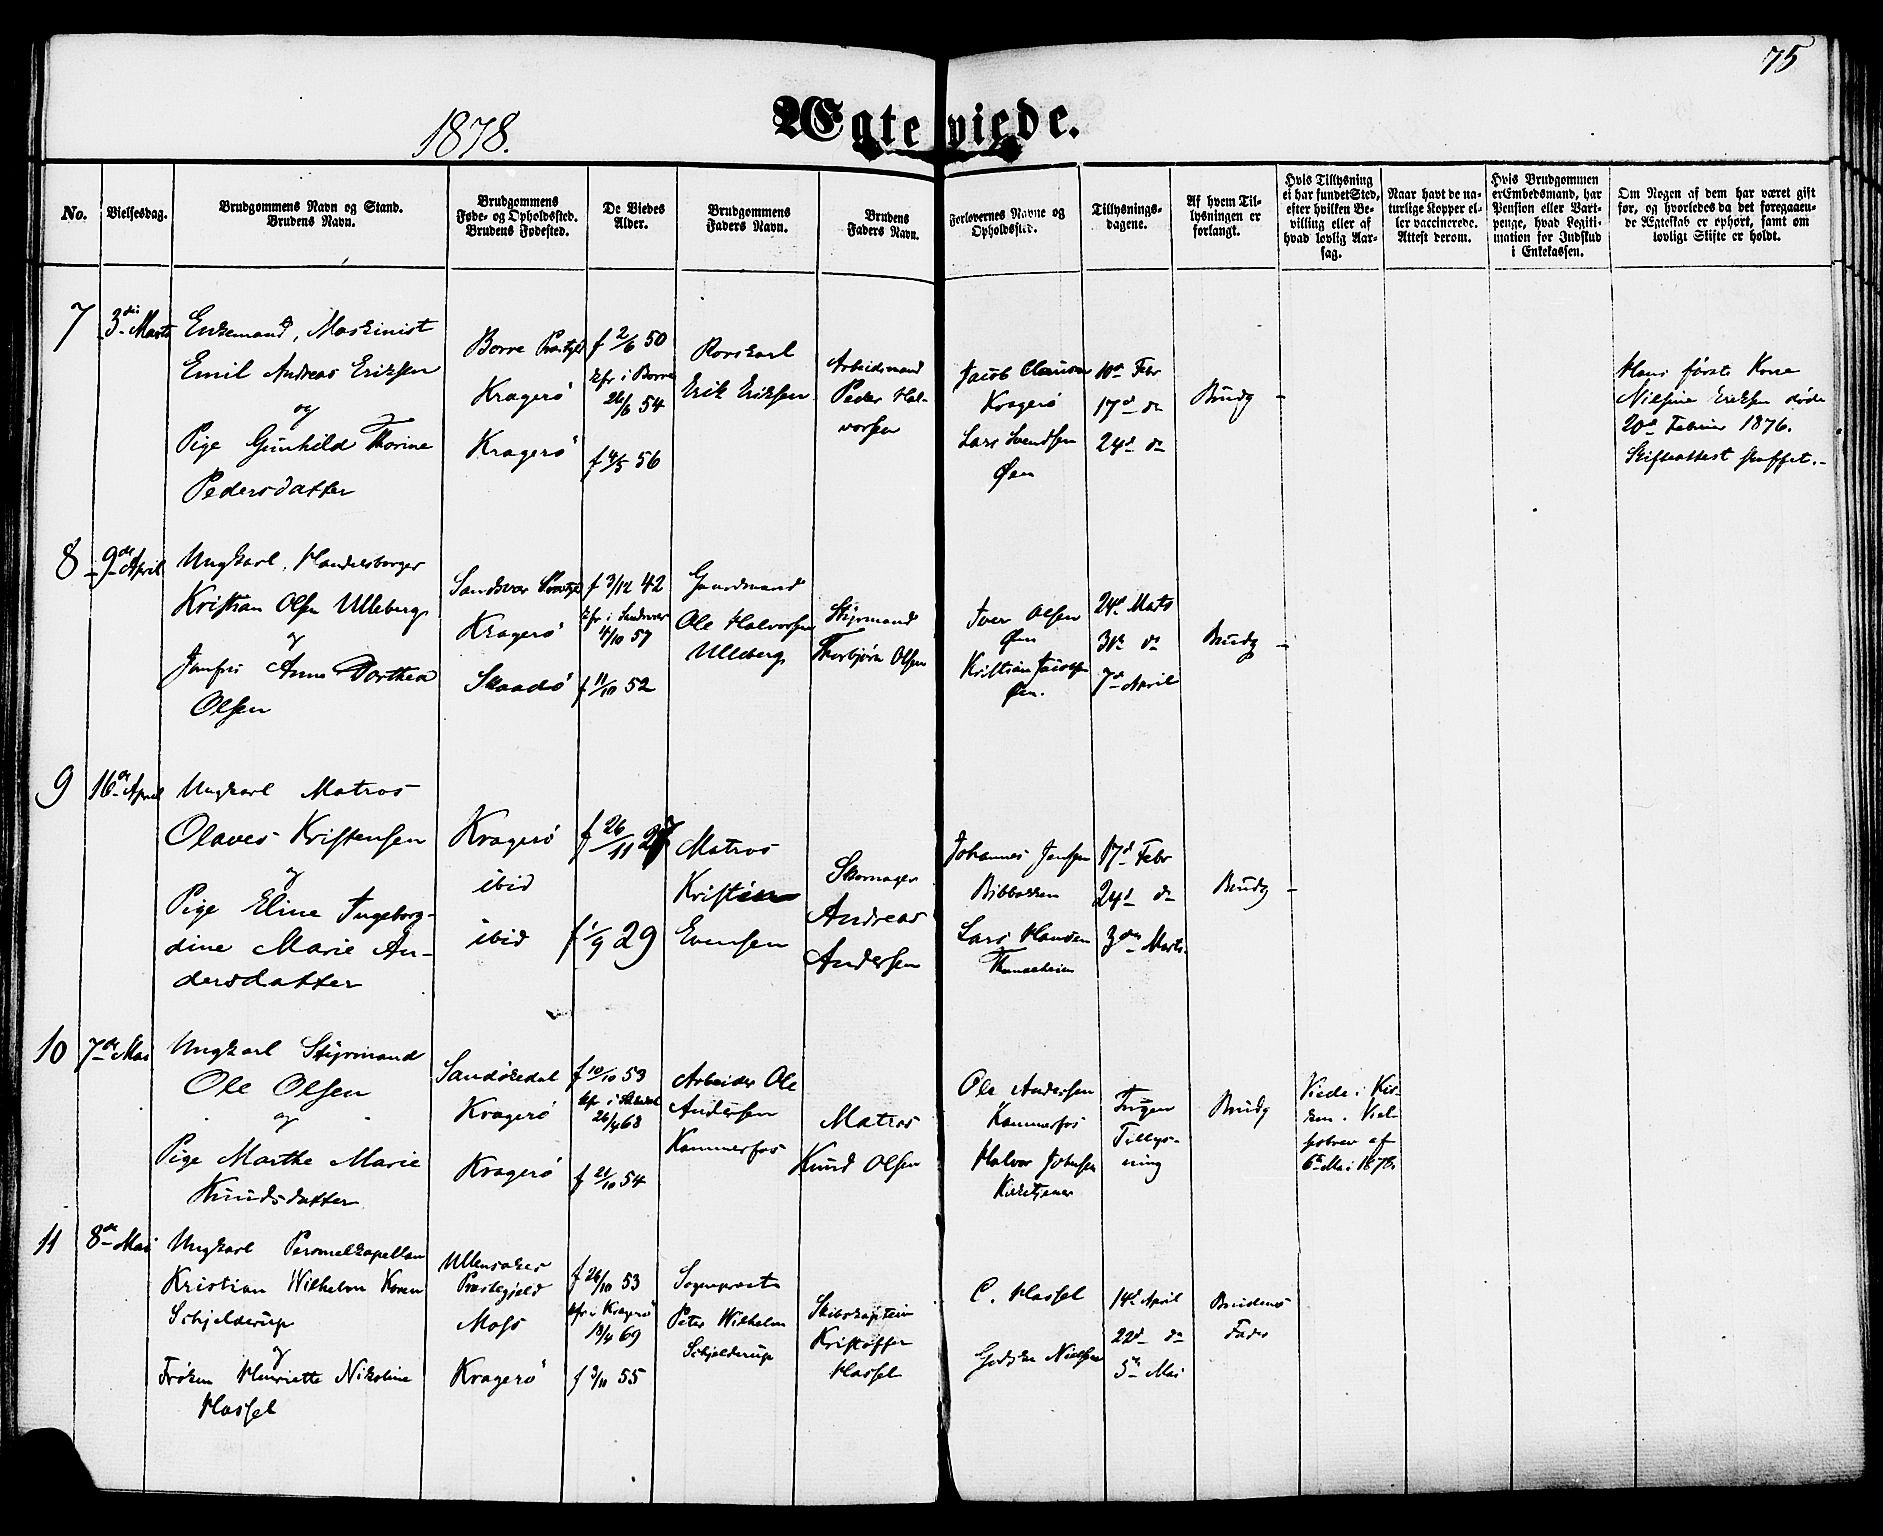 75
1878.
Ægteviede.
No.
Vielsesdag.
Brudgommens Navn og Stand.
Brudens Navn.
Brudgommens
Føde- og Opholdssted.
Brudens Fødested.
De Viedes
Alder.
Brudgommens
Faders Navn.
Brudens
Faders Navn.
Forlovernes Navne og
Opholdssted.
Tillysnings-
dagene.
Af hvem Til-
lysningen er
forlangt.
Hvis Tillysning
ei har fundet Sted,
efter hvilken Be-
villing eller af
hvad lovlig Aar-
sag.
Naar havt de na-
turlige Kopper el-
ler vaccinerede.
Attest derom.
Hvis Brudgommen
er Embedsmand, har
Pension eller Vart-
penge, hvad Legiti-
mation for Indskud
i Enkekassen.
Om Nogen af dem har været gift
før, og hvorledes da det foregaaen-
de Ægteskab er ophørt, samt om
lovligt Skifte er holdt.
7
3die Marts
Enkemand, Maskinist
Emil Andreas Eriksen
og
Pige Gunhild Thorine
Pedersdatter
Borre Præstgjd
Kragerø
Kragerø
f 2/6 50
kfr i Borre
26/6 54
f 4/5 56
Rorskarl
Erik Eriksen
Arbeidsmand
Peder Hal-
vorsen
Jacob Clausen
Kragerø
Lars Svendsen
Øen
10de Febr
17de do
24de do
Brudg
Hans første Kone
Nilsine Eriksen døde
20de Februar 1876.
Skifteattest skaffet.
8
9de April
Ungkarl, Handelsborger
Kristian Olsen Ulleberg
og
Jomfru Anne Dorthea
Olsen
Sandsvær Præstgjd
Kragerø
Skaadø
f 3/12 42
kfr i Sandsvær
4/10 57
f 11/10 52
Gaardmand
Ole Halvorsen
Ulleberg
Styrmand
Thorbjørn Olsen
Iver Olsen
Øen
Kristian Jacobsen
Øen.
24de Marts
31te do
7de April
Brudg
9
16de April
Ungkarl Matros
Olaves Kristensen
og
Pige Eline Ingeborg-
dine Marie An-
dersdatter
Kragerø
ibid
ibid
f 26/11 27
f 1/9 29
Matros
Kristen
Evensen
Skomager
Andreas
Andersen
Johannes Jensen
Bibbakken
Lars Hansen
17de Febr
24de do
3die Marts.
Brudg
10
7de Mai
Ungkarl Styrmand
Ole Olsen
og
Pige Marthe Marie
Knudsdatter
Sandøkedal
Kragerø
Kragerø
f 10/10 53
26/4 68
f 21/10 54
Arbeider Ole
Andersen
Kammerfos
Matros
Knud Olsen
Ole Andersen
Kammerfos
Halvor Johnsen
Kirketjener
Ingen
Tillys-
ning
Brudg
Viede i Kir-
ken. Viel-
sesbrev af
6te Mai 1878.
11
8de Mai
Ungkarl Personelkapellan
Kristian Wilhelm Koren
Schjelderup
og
Frøken Henriette Nikoline
Hassel
Ullensaker
Præstegjeld
Moss
Kragerø
f 26/10 53
kfr i Kragerø
18/4 69
f 3/11 55
Sognepræst
Peter Wilhelm
Schjelderup
Skibskaptein
Kristoffer
Hassel
C. Hassel
Godske Nielsen
14de April
22de do
5te Mai
Brudens
Fader